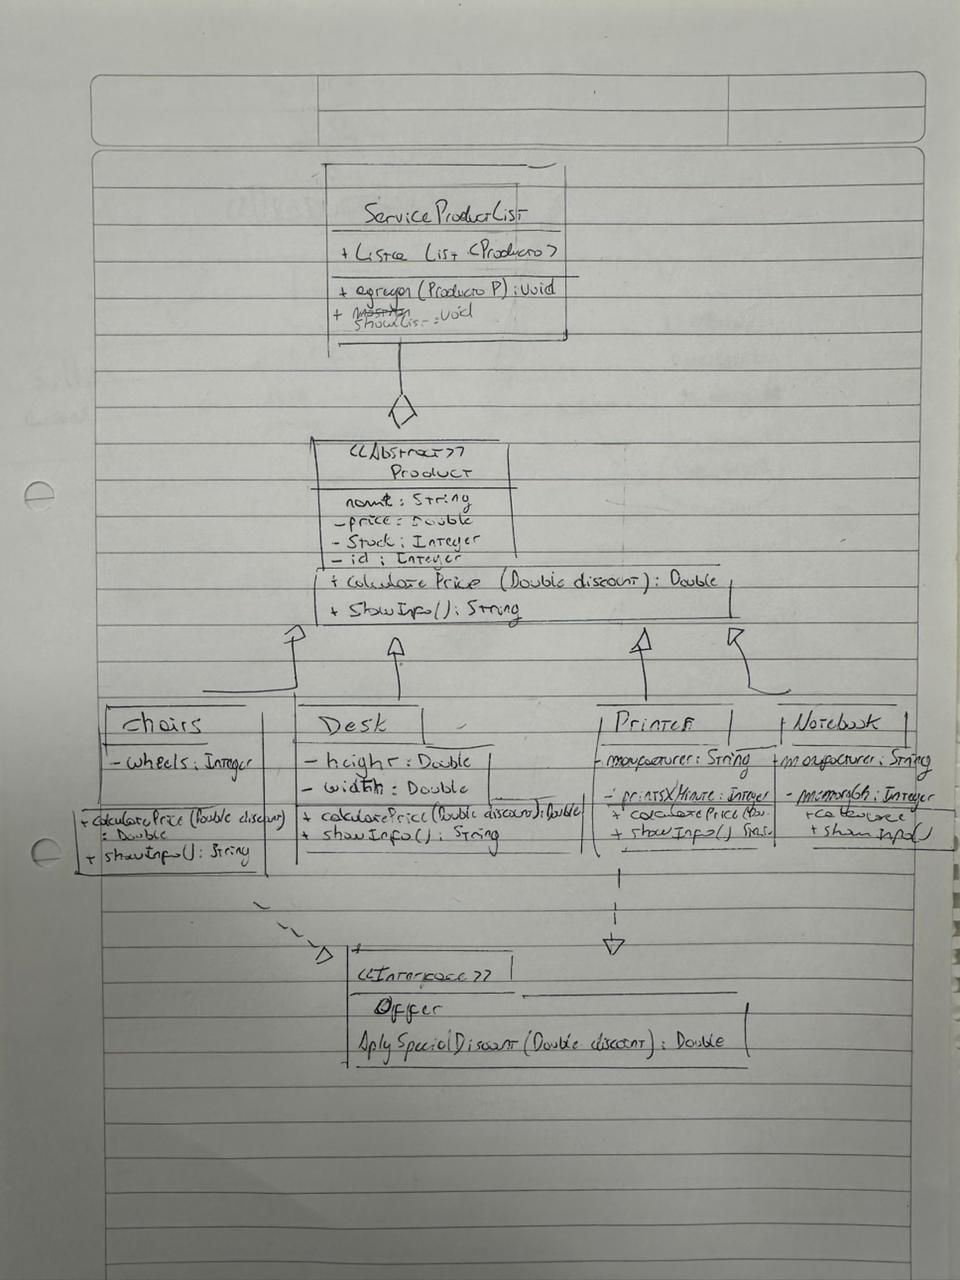 ServiceProductList
+ Lista List <Producto>
+ agregar (Producto P) : Void
+ showList : Void
<<Abstract>>
Product
name : String
- price : Double
- Stock : Integer
- id : Integer
+ calculate Price (Double discount) : Double
+ ShowInfo() : String
chairs
- wheels : Integer
+ calculatePrice (Double discount)
: Double
+ showInfo() : String
Desk
- height : Double
- width : Double
+ calculatePrice (Double discount) : Double
+ showInfo() : String
Printer
- manufacturer : String
- printsXMinute : Integer
+ calculatePrice (Dou.
+ showInfo()
Notebook
- manufacturer : String
- : Integer
+ showInfo()
<<Interface>>
Offer
AplySpecialDiscount (Double discount) : Double